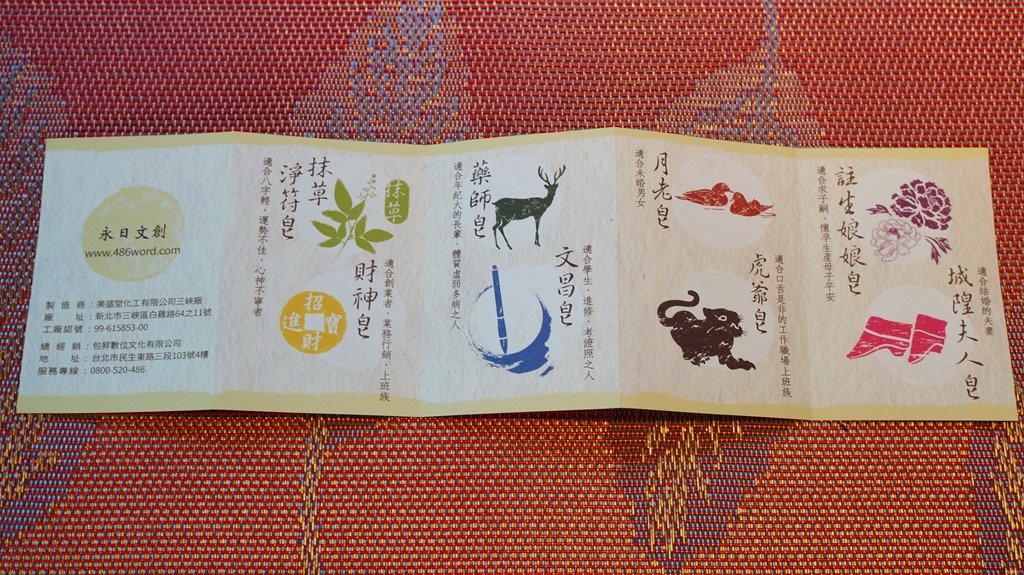 永日文創
www.486word.com
製造商：美盛堂化工有限公司三峽廠
廠址：新北市三峽區白雞路64之11號
工廠認號：99-615853-00
總經銷：包昇數位文化有限公司
地址：台北市民生東路三段103號4樓
服務專線：0800-520-486
抹草
淨符皂
適合八字輕、運勢不佳、心神不寧者
抹草
財神皂
適合創業者、業務行銷、上班族
招寶
進財
藥師皂
適合年紀大的長輩、體質虛弱多病之人
文昌皂
適合學生、進修、考證照之人
月老皂
適合未婚男女
虎爺皂
適合口舌是非的工作職場上班族
註生娘娘皂
適合求子嗣、懷孕生產母子平安
城隍夫人皂
適合結婚的夫妻